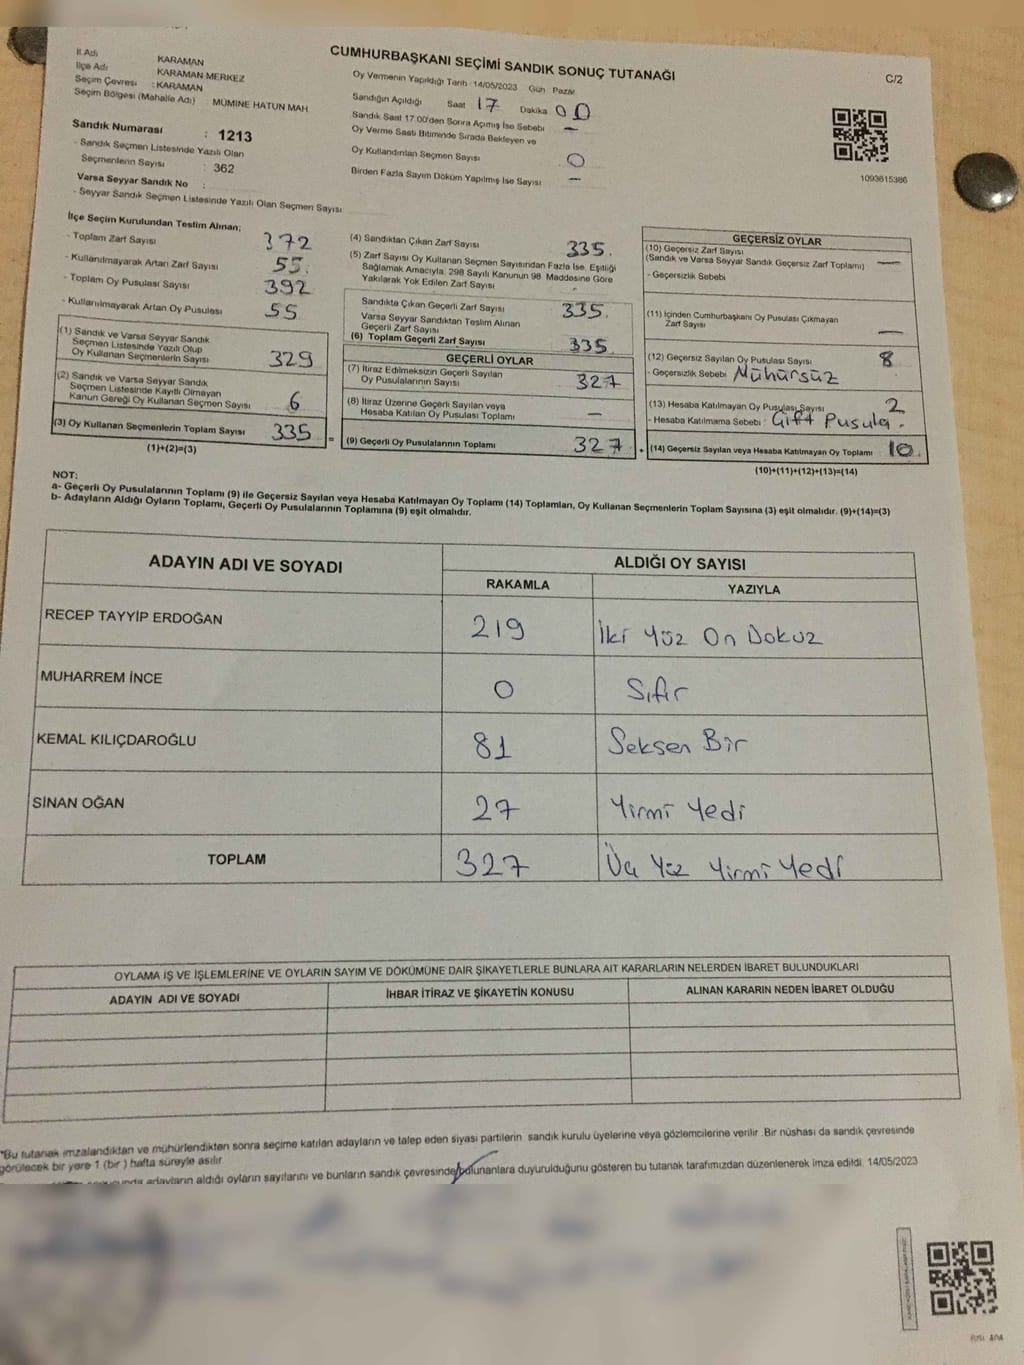 CUMHURBAŞKANI SEÇİMİ SANDIK SONUÇ TUTANAĞI
C/2
İl Adı KARAMAN
İlçe Adı KARAMAN MERKEZ
Seçim Çevresi : KARAMAN
Seçim Bölgesi (Mahalle Adı) : MÜMİNE HATUN MAH
Sandık Numarası : 1213
- Sandık Seçmen Listesinde Yazılı Olan
Seçmenlerin Sayısı : 362
Varsa Seyyar Sandık No :
- Seyyar Sandık Seçmen Listesinde Yazılı Olan Seçmen Sayısı
Oy Vermenin Yapıldığı Tarih : 14/05/2023 Gün Pazar
Sandığın Açıldığı Saat 17 Dakika 00
Sandık Saat 17:00'den Sonra Açmış İse Sebebi —
Oy Verme Saati Bitiminde Sırada Bekleyen ve
Oy Kullandırılan Seçmen Sayısı 0
Birden Fazla Sayım Döküm Yapılmış İse Sayısı —
1093615386
İlçe Seçim Kurulundan Teslim Alınan;
- Toplam Zarf Sayısı 372
- Kullanılmayarak Artan Zarf Sayısı 55.
- Toplam Oy Pusulası Sayısı 392
- Kullanılmayarak Artan Oy Pusulası 55
(1) Sandık ve Varsa Seyyar Sandık
Seçmen Listesinde Yazılı Olup
Oy Kullanan Seçmenlerin Sayısı 329
(2) Sandık ve Varsa Seyyar Sandık
Seçmen Listesinde Kayıtlı Olmayan
Kanun Gereği Oy Kullanan Seçmen Sayısı 6
(3) Oy Kullanan Seçmenlerin Toplam Sayısı 335 =
(1)+(2)=(3)
(4) Sandıktan Çıkan Zarf Sayısı 335.
(5) Zarf Sayısı Oy Kullanan Seçmen Sayısından Fazla İse, Eşitliği
Sağlamak Amacıyla, 298 Sayılı Kanunun 98. Maddesine Göre
Yakılarak Yok Edilen Zarf Sayısı
Sandıkta Çıkan Geçerli Zarf Sayısı 335.
Varsa Seyyar Sandıktan Teslim Alınan
Geçerli Zarf Sayısı
(6) Toplam Geçerli Zarf Sayısı 335
GEÇERLİ OYLAR
(7) İtiraz Edilmeksizin Geçerli Sayılan
Oy Pusulalarının Sayısı 327
(8) İtiraz Üzerine Geçerli Sayılan veya
Hesaba Katılan Oy Pusulası Toplamı —
(9) Geçerli Oy Pusulalarının Toplamı 327 +
GEÇERSİZ OYLAR
(10) Geçersiz Zarf Sayısı
(Sandık ve Varsa Seyyar Sandık Geçersiz Zarf Toplamı) —
- Geçersizlik Sebebi
(11) İçinden Cumhurbaşkanı Oy Pusulası Çıkmayan
Zarf Sayısı —
(12) Geçersiz Sayılan Oy Pusulası Sayısı 8
- Geçersizlik Sebebi Mühürsüz
(13) Hesaba Katılmayan Oy Pusulası Sayısı 2
- Hesaba Katılmama Sebebi : Çift Pusula.
(14) Geçersiz Sayılan veya Hesaba Katılmayan Oy Toplamı 10
(10)+(11)+(12)+(13)=(14)
NOT:
a- Geçerli Oy Pusulalarının Toplamı (9) ile Geçersiz Sayılan veya Hesaba Katılmayan Oy Toplamı (14) Toplamları, Oy Kullanan Seçmenlerin Toplam Sayısına (3) eşit olmalıdır. (9)+(14)=(3)
b- Adayların Aldığı Oyların Toplamı, Geçerli Oy Pusulalarının Toplamına (9) eşit olmalıdır.
ADAYIN ADI VE SOYADI
ALDIĞI OY SAYISI
RAKAMLA YAZIYLA
RECEP TAYYİP ERDOĞAN 219 İki Yüz On Dokuz
MUHARREM İNCE 0 Sıfır
KEMAL KILIÇDAROĞLU 81 Seksen Bir
SİNAN OĞAN 27 Yirmi Yedi
TOPLAM 327 Üç Yüz Yirmi Yedi
OYLAMA İŞ VE İŞLEMLERİNE VE OYLARIN SAYIM VE DÖKÜMÜNE DAİR ŞİKAYETLERLE BUNLARA AİT KARARLARIN NELERDEN İBARET BULUNDUKLARI
ADAYIN ADI VE SOYADI İHBAR İTİRAZ VE ŞİKAYETİN KONUSU ALINAN KARARIN NEDEN İBARET OLDUĞU
*Bu tutanak imzalandıktan ve mühürlendikten sonra seçime katılan adayların ve talep eden siyasi partilerin sandık kurulu üyelerine veya gözlemcilerine verilir. Bir nüshası da sandık çevresinde
görülecek bir yere 1 (bir) hafta süreyle asılır.
adayların aldığı oyların sayılarını ve bunların sandık çevresinde bulunanlara duyurulduğunu gösteren bu tutanak tarafımızdan düzenlenerek imza edildi. 14/05/2023